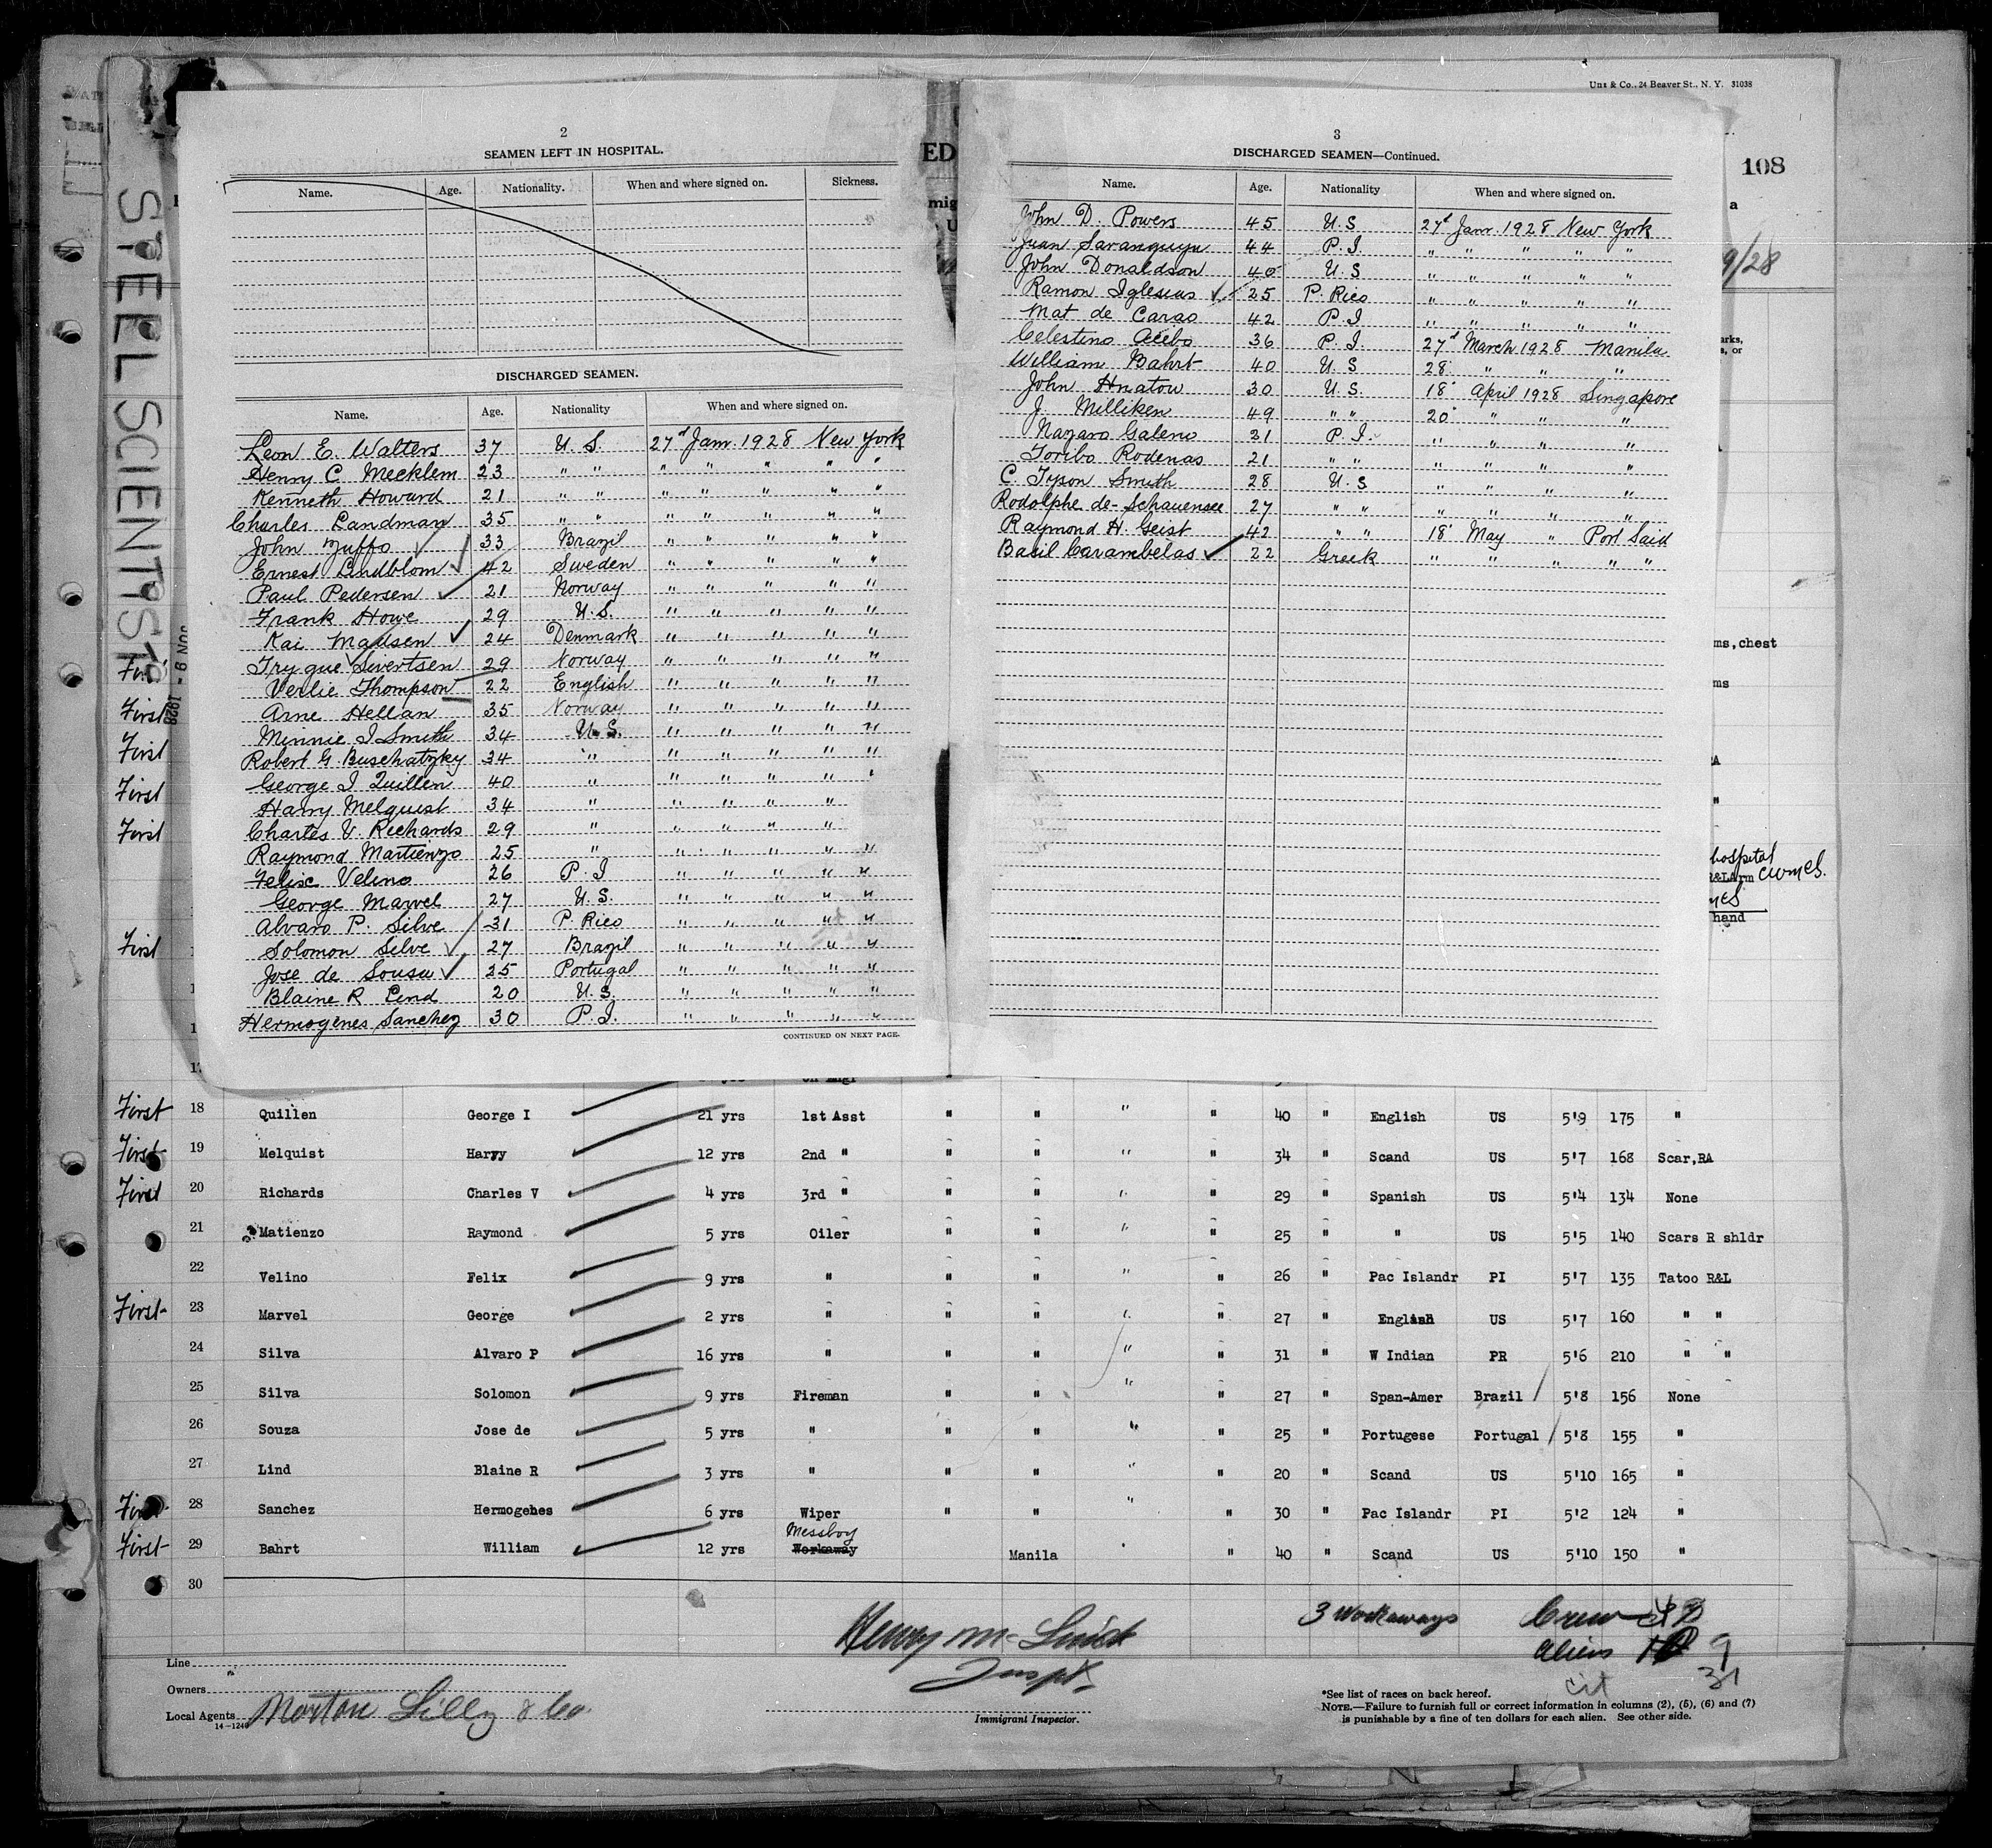 Unz & Co., 24 Beaver St., N. Y. 31038
108
9/28
STEEL SCIENTIST
JUN 9 - 1928
2
SEAMEN LEFT IN HOSPITAL.
Name. Age. Nationality. When and where signed on. Sickness.
DISCHARGED SEAMEN.
Name. Age. Nationality When and where signed on.
Leon E. Walters 37 U.S. 27" Jan. 1928 New York
Henry C Mecklem 23 " " " " " " "
Kenneth Howard 21 " " " " " " "
Charles Landman 35 " " " " " " "
John Zuffo 33 Brazil " " " " "
Ernest Lindblom 42 Sweden " " " " "
Paul Pedersen 21 Norway " " " " "
Frank Howe 29 U.S. " " " " "
Kai Madsen 24 Denmark " " " " "
Trygve Sivertsen 29 Norway " " " " "
Verlie Thompson 22 English " " " " "
Arne Hellan 35 Norway " " " " "
Minnie I Smith 34 U.S. " " " " "
Robert G. Buschatzky 34 " " " " " "
George I Quillen 40 " " " " " "
Harry Melquist 34 " " " " "
Charles V. Richards 29 " " " " "
Raymond Martienzo 25 " " " " " "
Felix Velino 26 P.I " " " " "
George Marvel 27 U.S. " " " " "
Alvaro P. Silve 31 P. Rico " " " " "
Solomon Silve 27 Brazil " " " " "
Jose de Sousa 25 Portugal " " " " "
Blaine R Lind 20 U.S. " " " " "
Hermogenes Sanchez 30 P.I. " " " " "
CONTINUED ON NEXT PAGE.
3
DISCHARGED SEAMEN—Continued.
Name. Age. Nationality When and where signed on.
John D. Powers 45 U.S 27" Jan. 1928 New York
Juan Saranquyn 44 P.I. " " " " "
John Donaldson 40 U.S " " " " "
Ramon Iglesias 25 P. Rico " " " " "
Mat de Carao 42 P.I " " " " "
Celestino Acebo 36 P.I. 27" March 1928 Manila
William Bahrt 40 U.S 28" " " "
John Hnatow 30 U.S. 18" April 1928 Singapore
J Milliken 49 " " 20" " " "
Nazaro Galeno 31 P.I. " " " "
Toribo Rodenas 21 " " " " " "
C. Tyson Smith 28 U.S " " " "
Rodolphe de-Schauensee 27 " " " " " "
Raymond H. Geist 42 " " 18" May " Port Said
Basil Carambelas 22 Greek " " " " "
ms, chest
ms
hospital
hand
First 18 Quillen George I 21 yrs 1st Asst " " " " 40 " English US 5'9 175 "
First 19 Melquist Harry 12 yrs 2nd " " " " " 34 " Scand US 5'7 168 Scar,RA
First 20 Richards Charles V 4 yrs 3rd " " " " " 29 " Spanish US 5'4 134 None
21 Matienzo Raymond 5 yrs Oiler " " " " 25 " " US 5'5 140 Scars R shldr
22 Velino Felix 9 yrs " " " " " 26 " Pac Islandr PI 5'7 135 Tatoo R&L
First 23 Marvel George 2 yrs " " " " " 27 " English US 5'7 160 " "
24 Silva Alvaro P 16 yrs " " " " " 31 " W Indian PR 5'6 210 " "
25 Silva Solomon 9 yrs Fireman " " " " 27 " Span-Amer Brazil 5'8 156 None
26 Souza Jose de 5 yrs " " " " " 25 " Portugese Portugal 5'8 155 "
27 Lind Blaine R 3 yrs " " " " " 20 " Scand US 5'10 165 "
First 28 Sanchez Hermogenes 6 yrs Wiper " " " " 30 " Pac Islandr PI 5'2 124 "
Messboy
First 29 Bahrt William 12 yrs Workaway Manila " " 40 " Scand US 5'10 150 "
30
3 Workaways Crew
Aliens 9
cit 31
Line
Owners
Local Agents Norton Lilly & Co.
14-1240
Immigrant Inspector.
*See list of races on back hereof.
NOTE.—Failure to furnish full or correct information in columns (2), (5), (6) and (7)
is punishable by a fine of ten dollars for each alien. See other side.